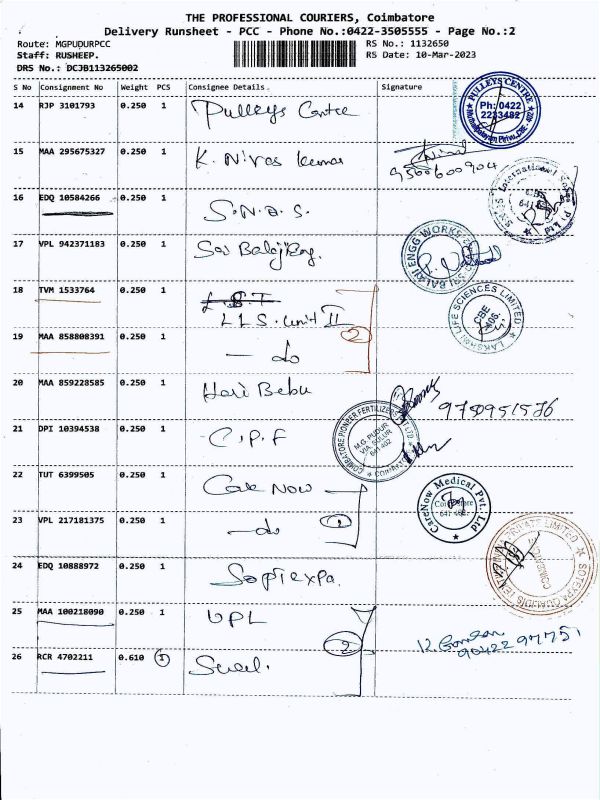 THE PROFESSIONAL COURIERS, Coimbatore
Delivery Runsheet - PCC - Phone No.:0422-3505555 - Page No.:2
Route: MGPUDURPCC
RS No.: 1132650
Staff: RUSHEEP.
RS Date: 10-Mar-2023
DRS No.: DCJB113265002
S No Consignment No Weight PCS Consignee Details Signature
14 RJP 3101793 0.250 1 Pulleys Centre
PULLEYS CENTRE
Ph: 0422
2233482
15 MAA 295675327 0.250 1 K. Nivas Kumar
9566600904
16 EDQ 10584266 0.250 1 S.N.A.S.
17 VPL 942371183 0.250 1 Sai Balaji Eng.
SRI BALAJI ENGG WORKS
18 TVM 1533764 0.250 1
LLS. Unit II
2
LAKSHMI LIFE SCIENCES LIMITED
CBE
406.
19 MAA 858808391 0.250 1 - do
20 MAA 859228585 0.250 1 Hari Babu
9750951576
21 DPI 10394538 0.250 1 C.P.F
COIMBATORE PIONEER FERTILIZERS PVT LTD
M.G. PUDUR
VIA. SULUR
641 402
22 TUT 6399505 0.250 1 Care Now
CareNow Medical Pvt. Ltd
23 VPL 217181375 0.250 1 - do
1
24 EDQ 10888972 0.250 1
25 MAA 100218090 0.250 1 UPL
2
90422 97751
26 RCR 4702211 0.610 1